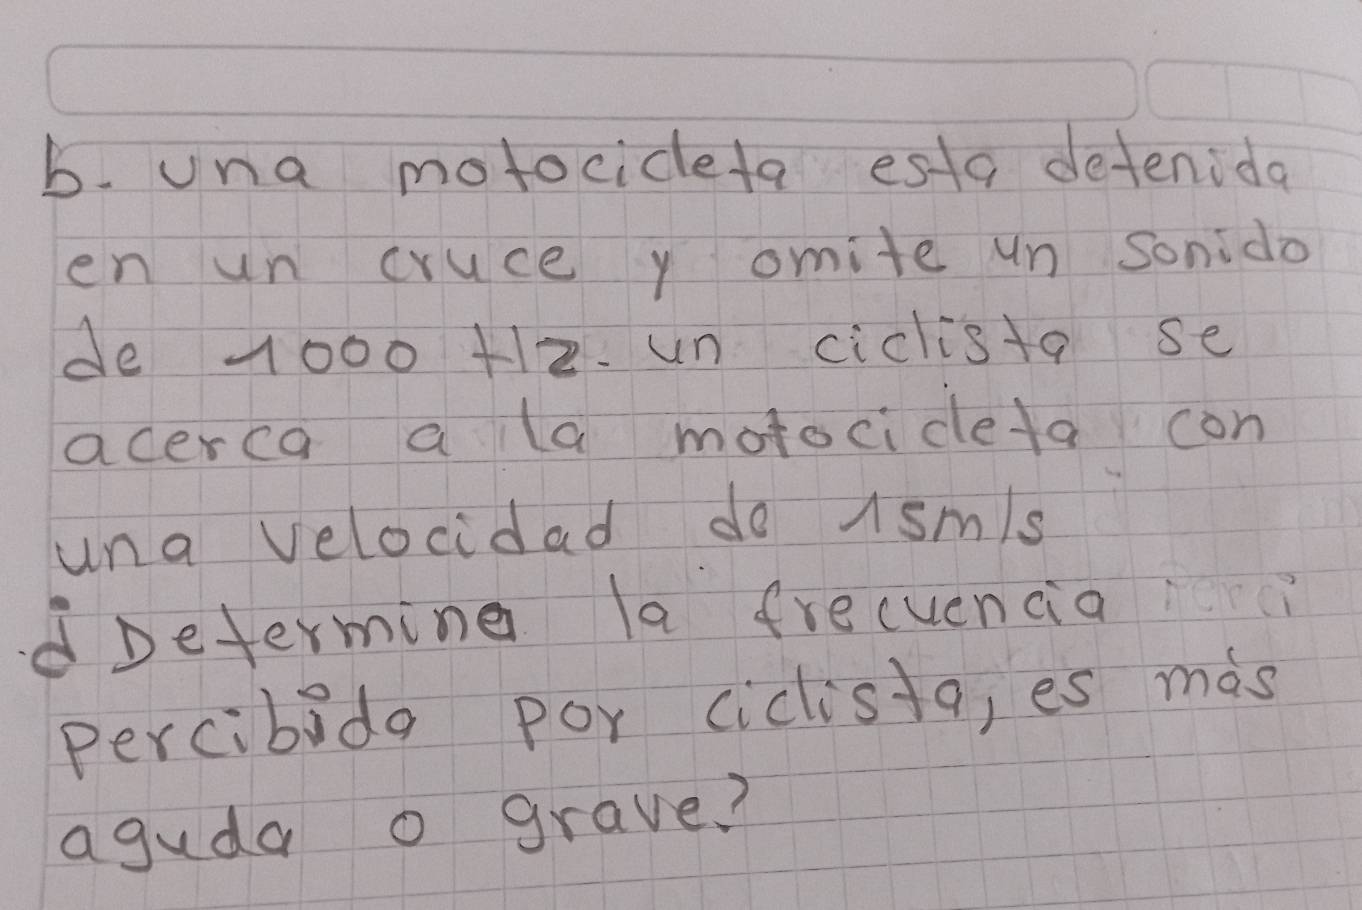 b. una motocicleta esta detenida
en un cruce y omite un sonido
de 1000 Hz. un ciclista se
acerca a la motocicleta con
una velocidad de 15m/s
¿ Determine la frecuencia
percibida por ciclista, es más
aguda o grave?